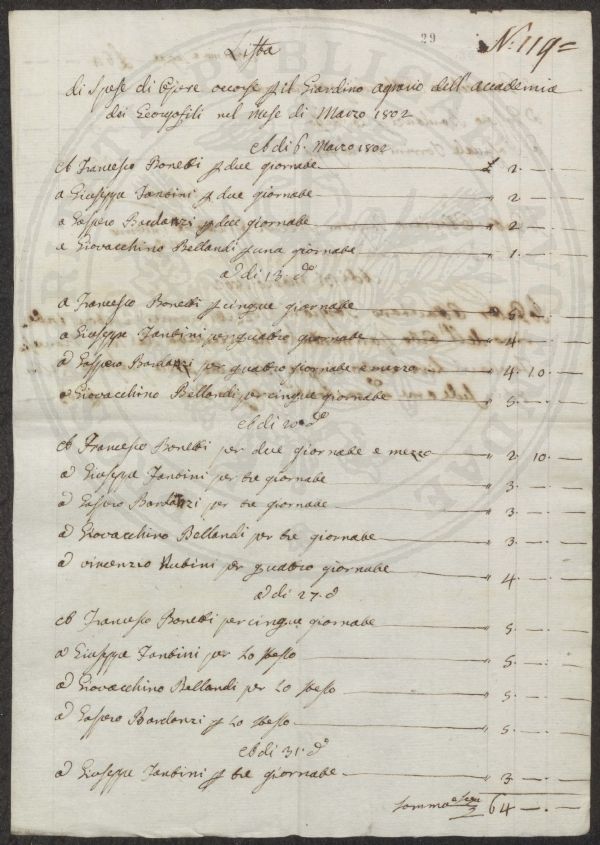 29
N: 119=
Lista
di Spese di Opere occorse p il Giardino agrario dell'accademia
dei Georgofili nel Mese di Marzo 1802
A di 6. Marzo 1802
A Francesco Bonetti p due giornate £ 2. —.
a Giuseppe Fantini p due giornate " 2. —
a Gaspero Bardanzi p due giornate " 2. —
a Giovacchino Bellandi p una giornata " 1. —
a di 13. do
a Francesco Bonetti p cinque giornate " 5. —
a Giuseppe Fantini per quattro giornate " 4. —
a Gaspero Bardanzi per quattro giornate e mezzo " 4. 10.
a Giovacchino Bellandi per cinque giornate " 5. —
A di 20. do
A Francesco Bonetti per due giornate e mezzo " 2. 10. —
a Giuseppe Fantini per tre giornate " 3. — .
a Gaspero Bardanzi per tre giornate " 3. — .
a Giovacchino Bellandi per tre giornate " 3. — .
a vincenzio Rubini per quattro giornate " 4. — .
a di 27. d
A Francesco Bonetti per cinque giornate " 5. — .
a Giuseppe Fantini per Lo stesso " 5. — .
a Giovacchino Bellandi per Lo stesso " 5. — .
a Gaspero Bardanzi p Lo stesso " 5. — .
A di 31. do
a Giuseppe Fantini p tre giornate " 3. — .
Somma 64 — .